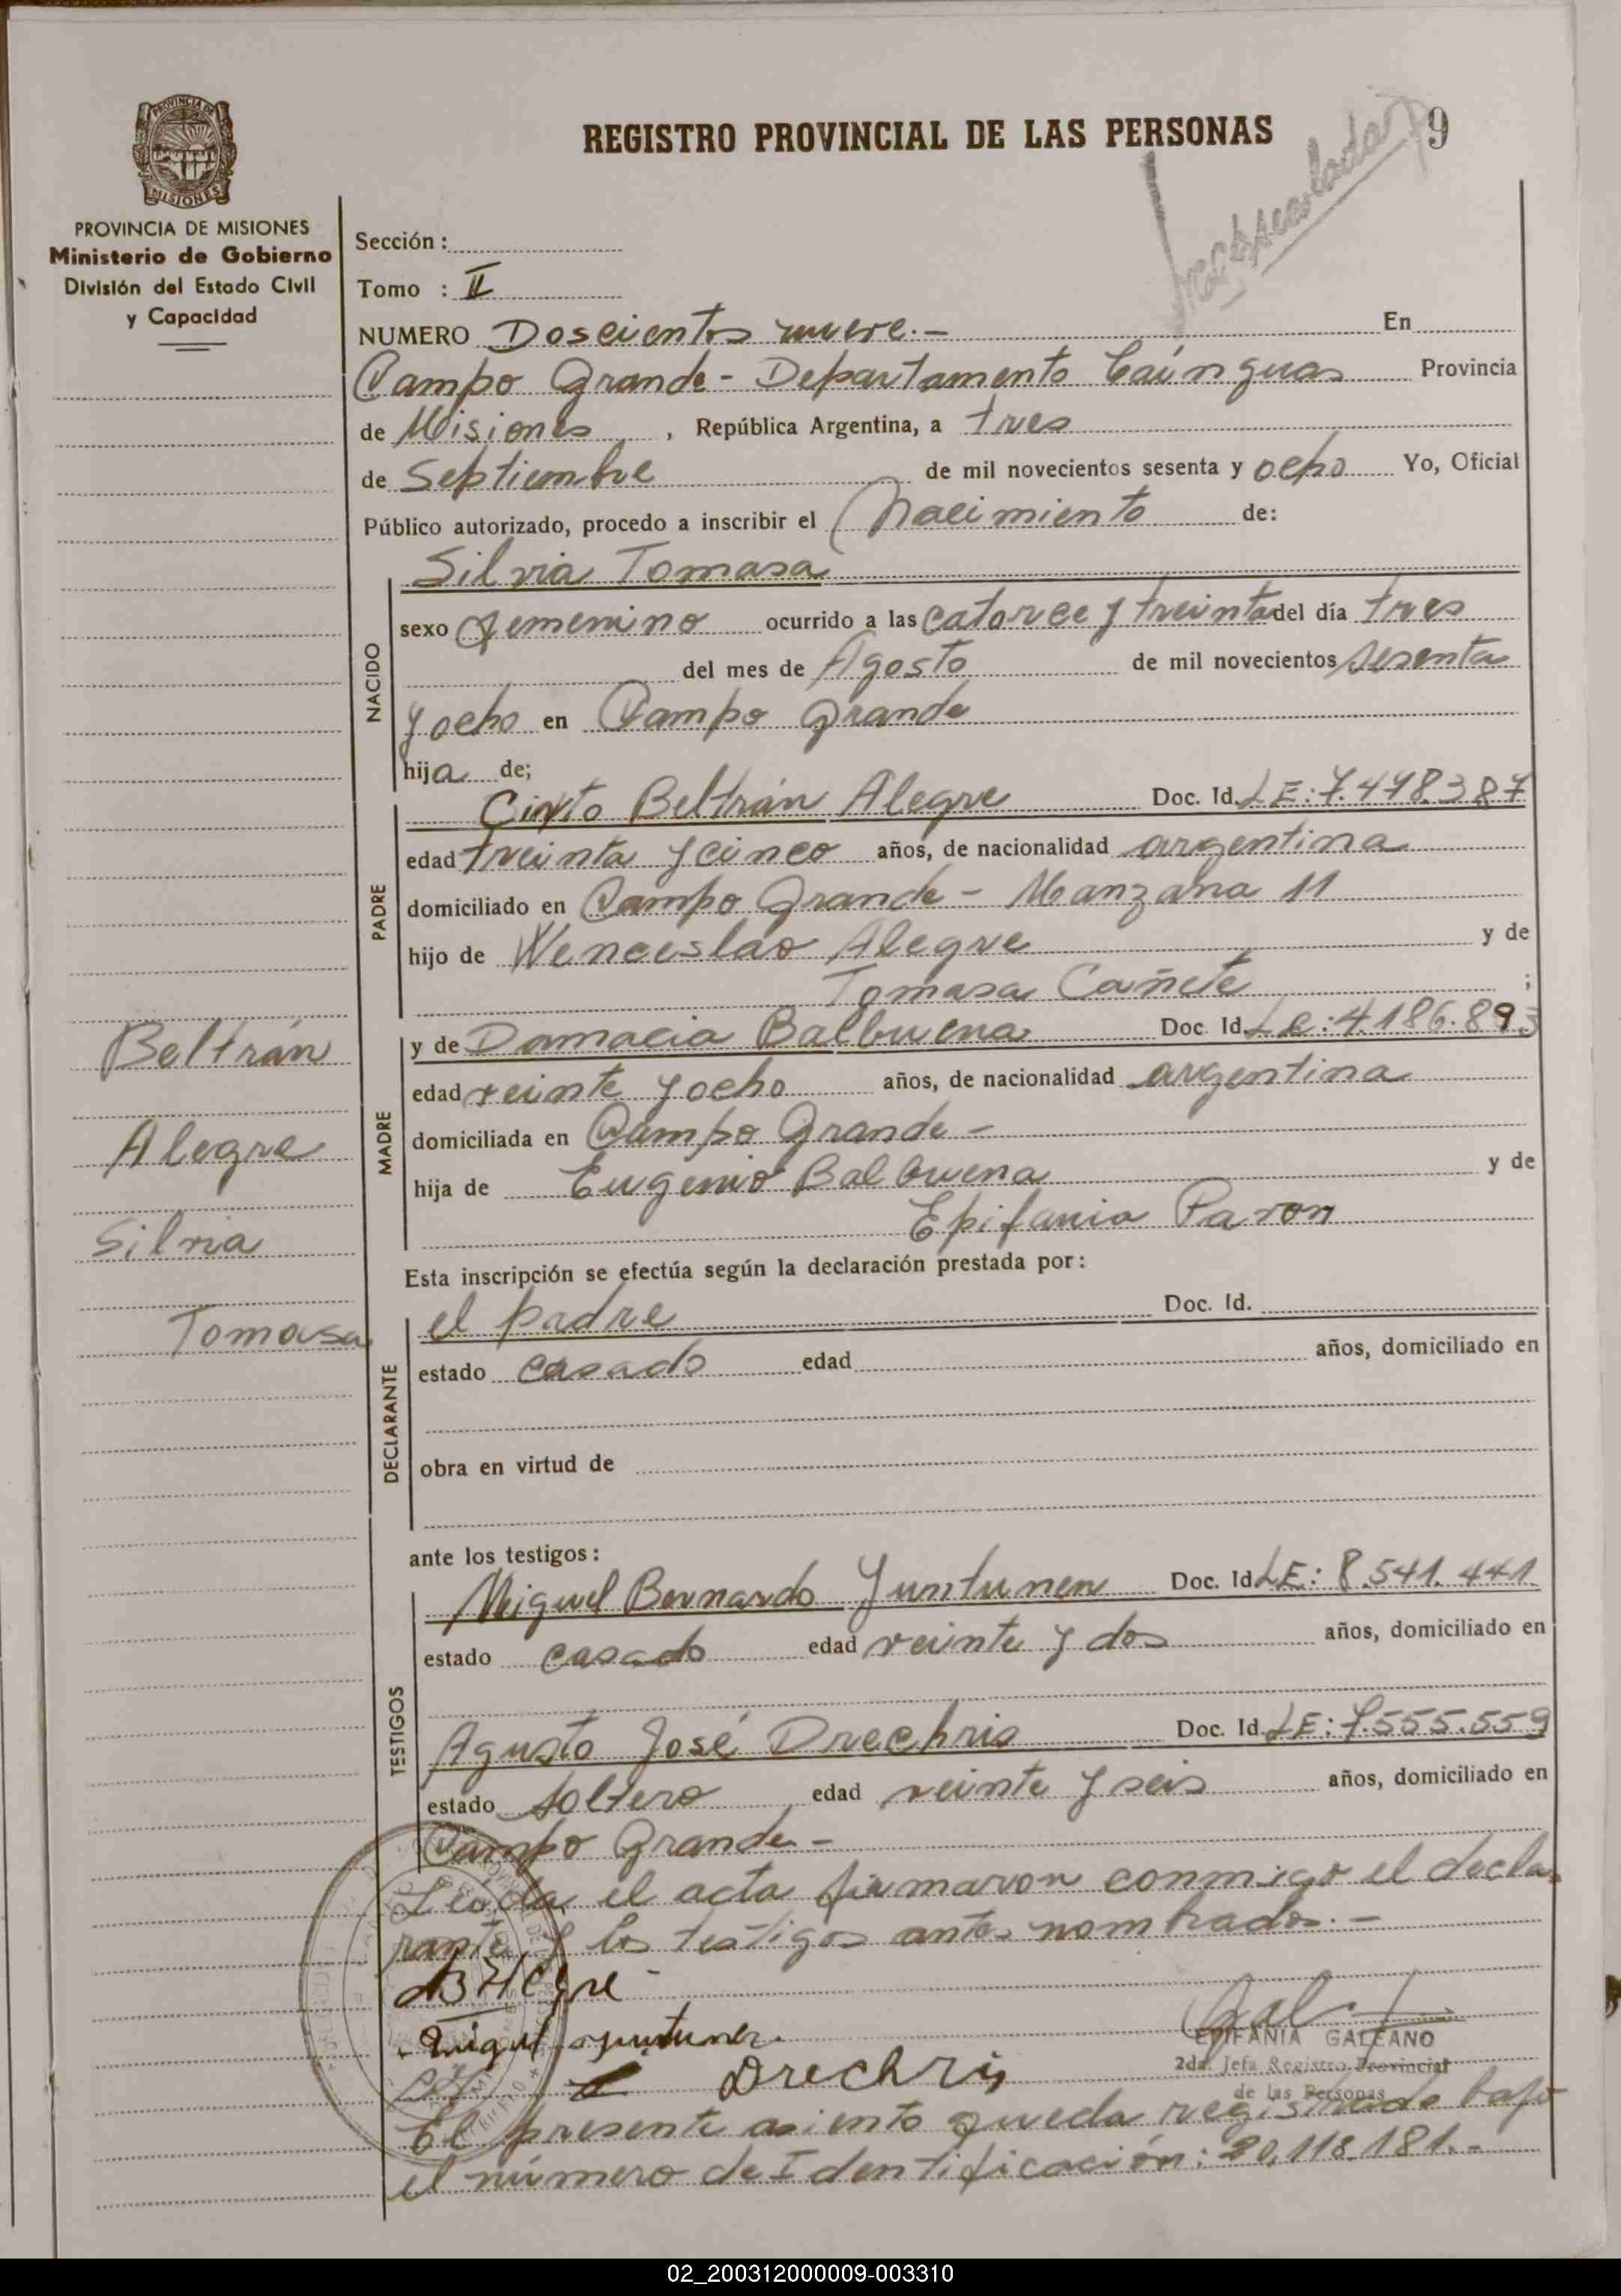 REGISTRO PROVINCIAL DE LAS PERSONAS
9
PROVINCIA DE MISIONES
PROVINCIA DE MISIONES
Ministerio de Gobierno
División del Estado Civil
y Capacidad
Sección :
Tomo : II
NUMERO Doscientos nueve.- En
Campo Grande - Departamento Cainguas Provincia
de Misiones , República Argentina, a tres
de Septiembre de mil novecientos sesenta y ocho Yo, Oficial
Público autorizado, procedo a inscribir el Nacimiento de:
Silvia Tomasa
NACIDO
sexo femenino ocurrido a las catorce y treinta del día tres
del mes de Agosto de mil novecientos sesenta
y ocho en Campo Grande
hija de;
PADRE
Cirto Beltrán Alegre Doc. Id. LE: 7.478.387
edad treinta y cinco años, de nacionalidad argentina
domiciliado en Campo Grande - Manzana 11
hijo de Wenceslao Alegre y de
Tomasa Cañete ;
MADRE
y de Damacia Balbuena Doc. Id. Lc: 4.186.893
edad veinte y ocho años, de nacionalidad argentina
domiciliada en Campo Grande -
hija de Eugenio Balbuena y de
Epifania Paron
Beltrán
Alegre
Silvia
Tomasa
Esta inscripción se efectúa según la declaración prestada por :
DECLARANTE
el padre Doc. Id.
estado casado edad años, domiciliado en
obra en virtud de
ante los testigos :
TESTIGOS
Miguel Bernardo Yuntunen Doc. Id. LE: 8.541.441
estado casado edad veinte y dos años, domiciliado en
Agusto José Drechris Doc. Id. LE: 7.555.559
estado soltero edad veinte y seis años, domiciliado en
Campo Grande -
Leída el acta firmaron conmigo el decla-
rante y los testigos antes nombrados.-
B Alegre
Miguel Yuntunen
Drechris
EPIFANIA GALEANO
2da. Jefa Registro Provincial
de las Personas
El presente asiento queda registrado bajo
el número de Identificación: 20.118.181.-
02_200312000009-003310